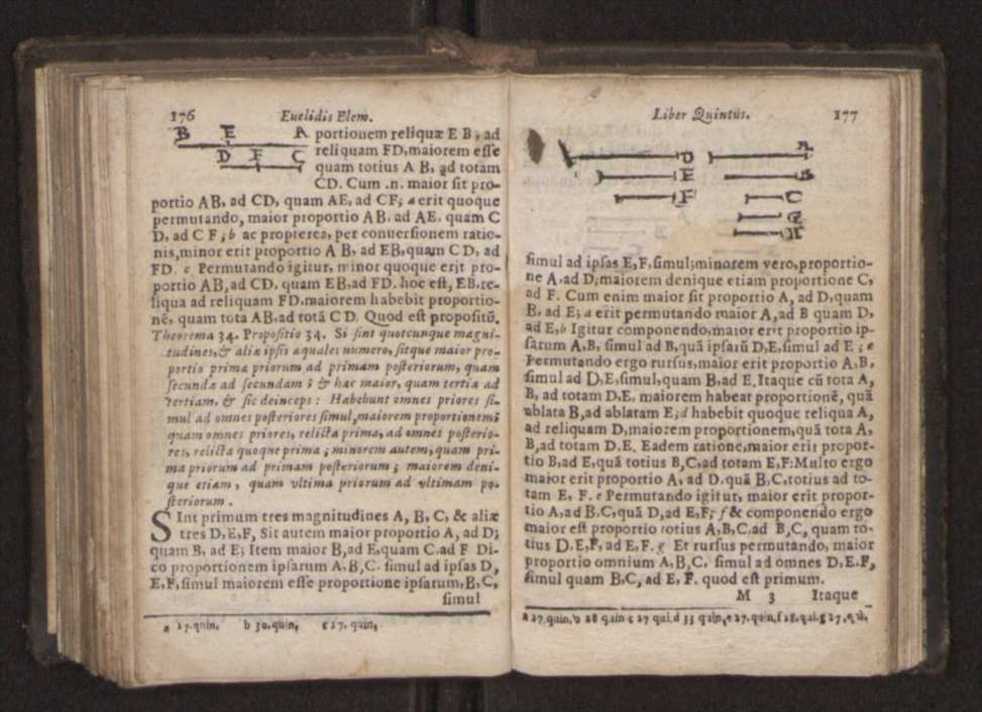 176 Euclidis Elem.
B E A
D F C
portionem reliquæ E B, ad
reliquam FD, maiorem esse
quam totius A B, ad totam
CD. Cum .n. maior sit pro-
portio AB, ad CD, quam AE, ad CF; a erit quoque
permutando, maior proportio AB. ad AE. quam C
D, ad C F; b ac propterea, per conuersionem ratio-
nis, minor erit proportio A B, ad EB, quam C D, ad
FD. c Permutando igitur, minor quoque erit pro-
portio AB, ad CD, quam EB, ad FD. hoc est, EB. re-
liqua ad reliquam FD. maiorem habebit proportio-
nē, quam tota AB. ad totā C D. Quod est propositū.
Theorema 34. Propositio 34. Si sint quotcunque magni-
tudines, & aliæ ipsis æquales numero, sitque maior pro-
portio primæ priorum ad primam posteriorum, quam
secundæ ad secundam; & hæc maior, quam tertiæ ad
tertiam, & sic deinceps: Habebunt omnes priores si-
mul ad omnes posteriores simul, maiorem proportionem;
quam omnes priores, relicta prima, ad omnes posterio-
res, relicta quoque prima; minorem autem, quam pri-
ma priorum ad primam posteriorum; maiorem deni-
que etiam, quam vltima priorum ad vltimam po-
steriorum.
SInt primum tres magnitudines A, B, C, & aliæ
tres D, E, F, Sit autem maior proportio A, ad D;
quam B, ad E; Item maior B, ad E, quam C. ad F Di-
co proportionem ipsarum A, B, C. simul ad ipsas D,
E, F, simul maiorem esse proportione ipsarum, B, C,
simul
a 27. quin. b 30. quin. c 27. quin.
Liber Quintus. 177
D A
E B
F C
G
H
simul ad ipsas E, F, simul; minorem vero, proportio-
ne A, ad D; maiorem denique etiam proportione C,
ad F. Cum enim maior sit proportio A, ad D, quam
B, ad E; a erit permutando maior A, ad B quam D,
ad E, b Igitur componendo, maior erit proportio ip-
sarum A, B, simul ad B, quā ipsarū D, E, simul ad E; c
Permutando ergo rursus, maior erit proportio A, B,
simul ad D, E, simul, quam B, ad E. Itaque cū tota A,
B, ad totam D, E, maiorem habeat proportionē, quā
ablata B, ad ablatam E; d habebit quoque reliqua A,
ad reliquam D, maiorem proportionem, quā tota A,
B, ad totam D. E. Eadem ratione, maior erit propor-
tio B, ad E, quā totius B, C, ad totam E, F: Multo ergo
maior erit proportio A, ad D. quā B, C, totius ad to-
tam E, F. e Permutando igitur, maior erit propor-
tio A, ad B. C, quā D, ad E, F; f & componendo ergo
maior est proportio totius A, B, C. ad B, C, quam to-
tius D. E, F, ad E, F. g Et rursus permutando, maior
proportio omnium A, B, C, simul ad omnes D, E, F,
simul quam B, C, ad E, F. quod est primum.
M 3 Itaque
a 27. quin. b 28 quin c 27 qui. d 33 quin. e 27. quin. f 28. qui. g 27. qui.